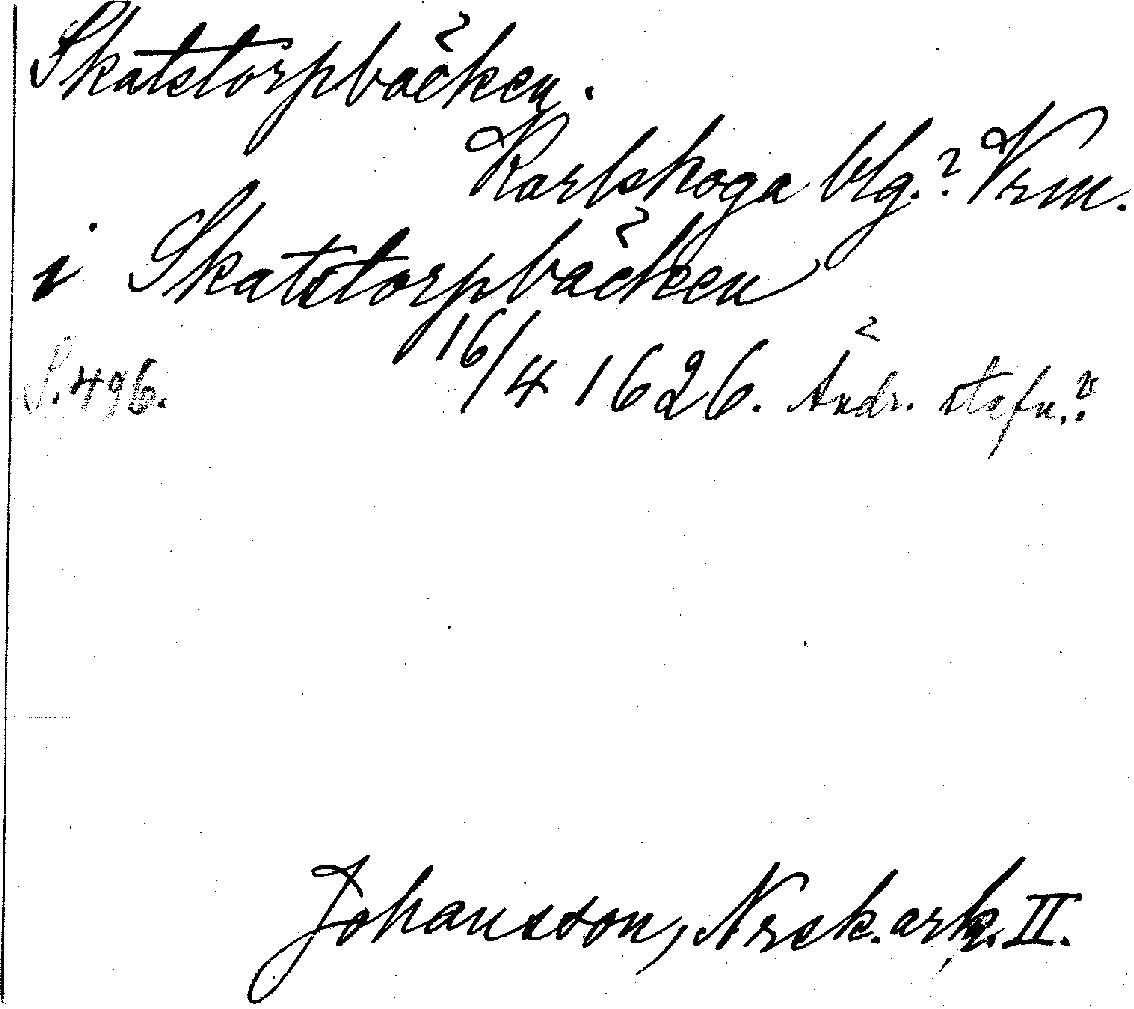 Skatstorpbäcken.
Karlskoga blg.? Vrm.
i Skatstorpbäcken
S. 496. 16/4 1626. Ändr. stafn.?
Johansson, Nrsk. ark. II.